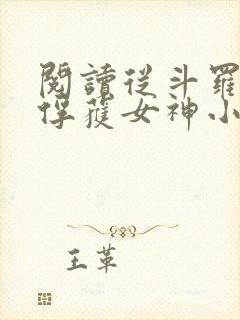 閱讀從斗羅
俘獲女神小
王革